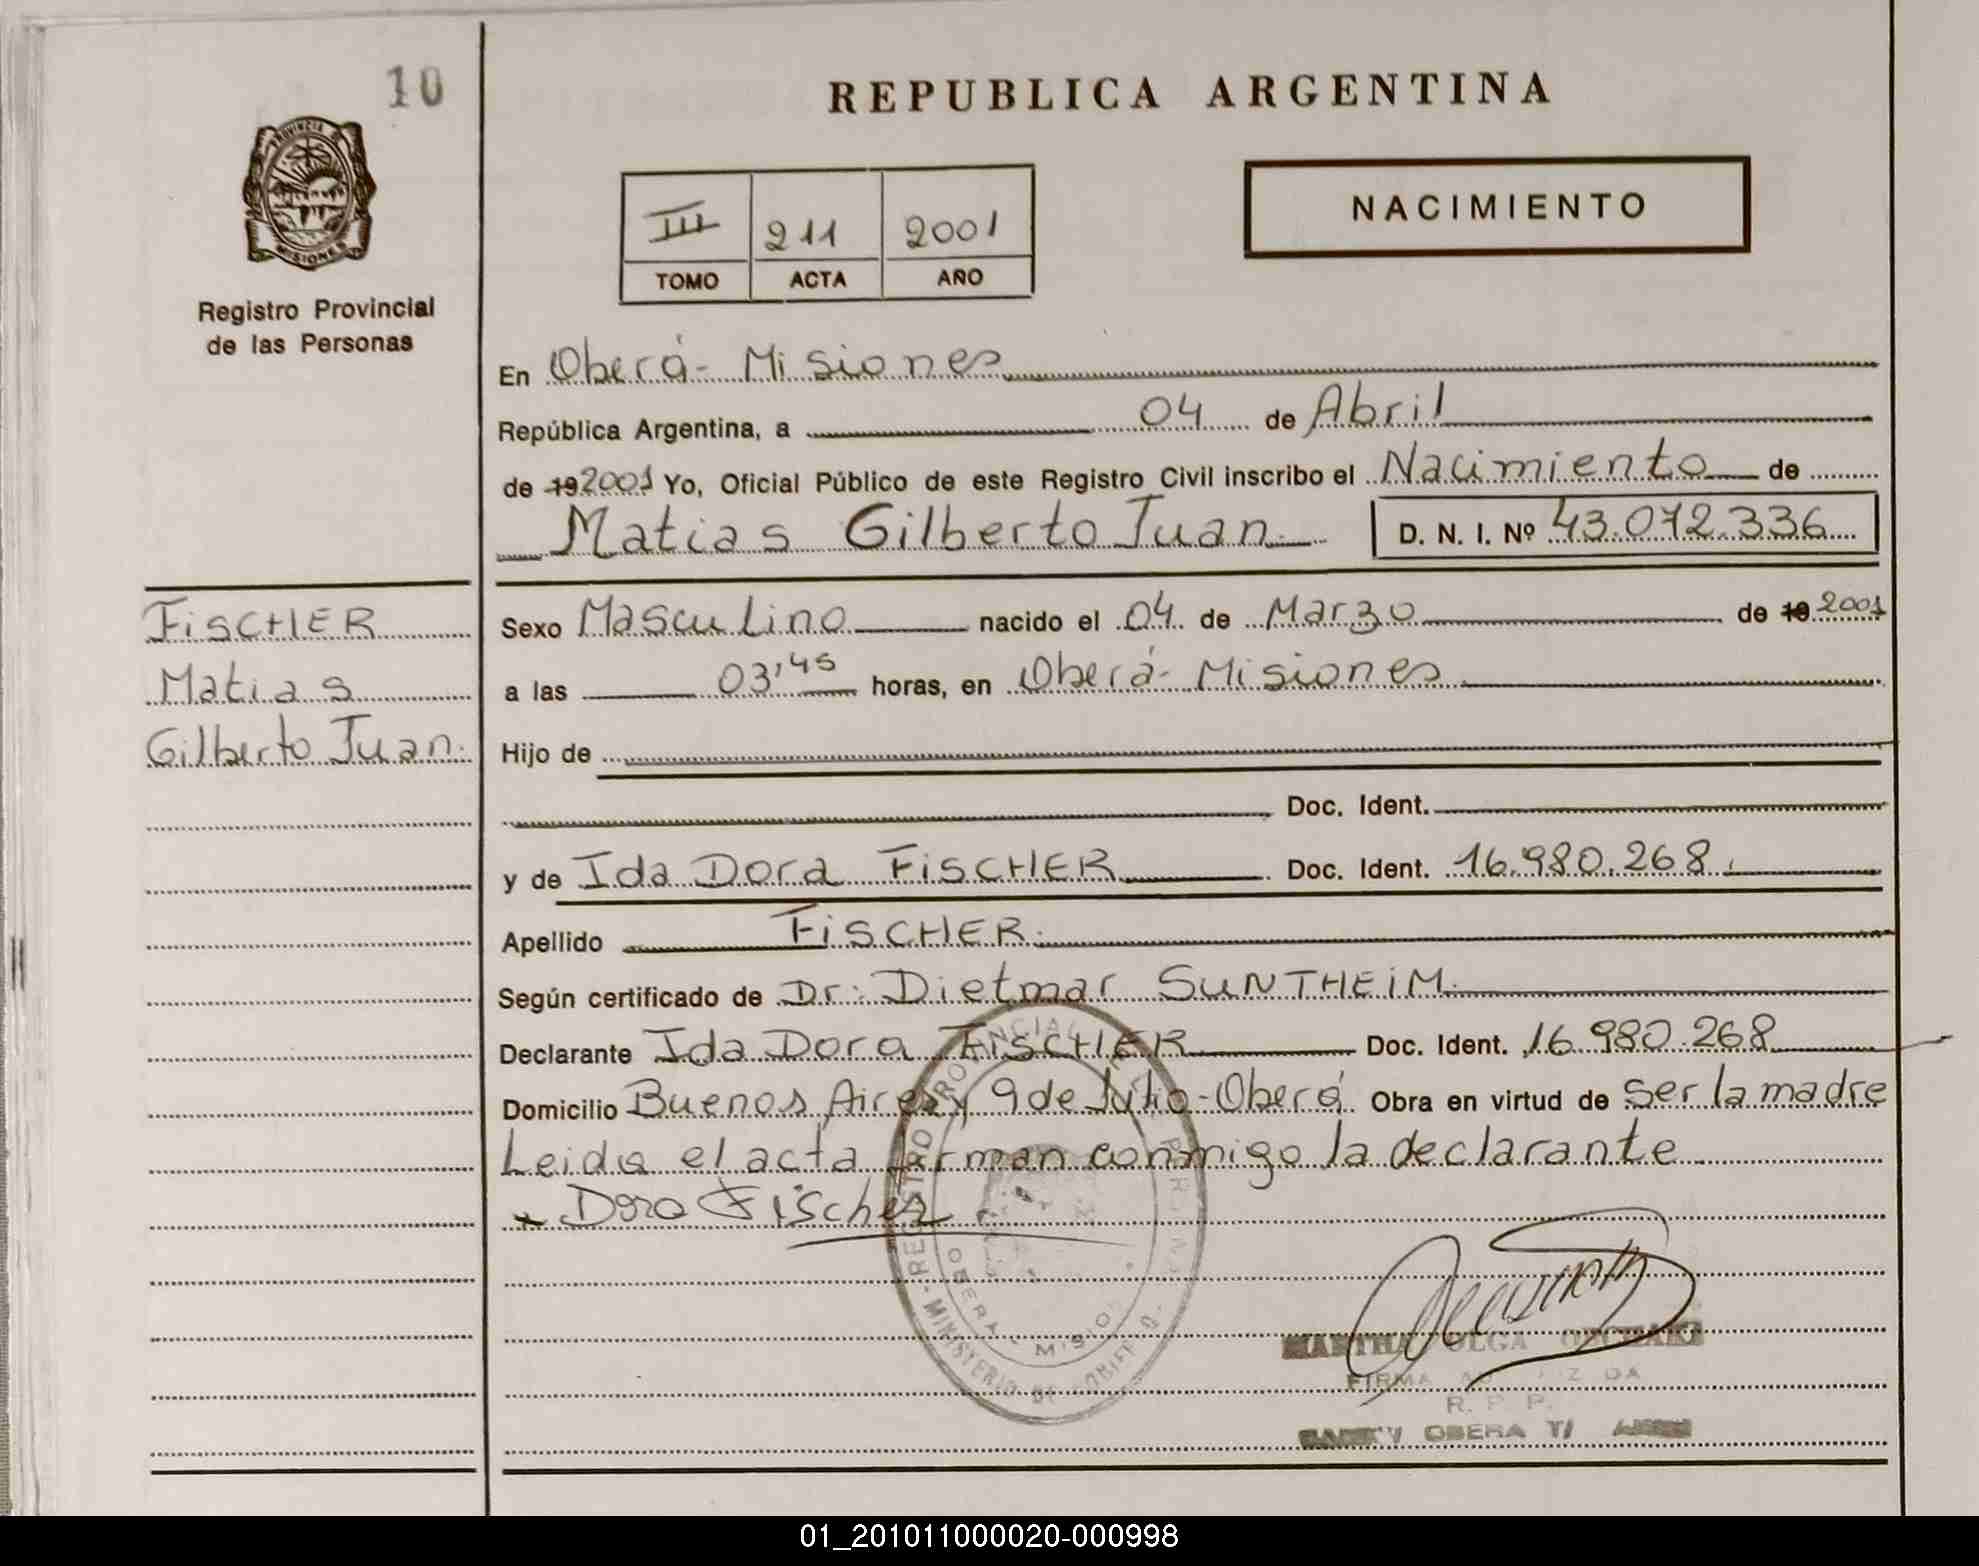 10
REPUBLICA ARGENTINA
PROVINCIA DE
MISIONES
Registro Provincial
de las Personas
III 211 2001
TOMO ACTA AÑO
NACIMIENTO
En Oberá - Misiones
República Argentina, a 04 de Abril
de 19 2001 Yo, Oficial Público de este Registro Civil inscribo el Nacimiento de
Matias Gilberto Juan. D. N. I. Nº 43.072.336
FiSCHER
Matias
Gilberto Juan.
Sexo Masculino nacido el 04 de Marzo de 19 2001
a las 03,45 horas, en Oberá - Misiones
Hijo de
Doc. Ident.
y de Ida Dora FiSCHER Doc. Ident. 16.980.268.
Apellido FiSCHER.
Según certificado de Dr: Dietmar SUNTHEiM.
Declarante Ida Dora FiSCHER Doc. Ident. 16.980.268
Domicilio Buenos Aires y 9 de Julio - Oberá Obra en virtud de ser la madre
Leida el acta firman conmigo la declarante
Dora Fischer
REGISTRO PROVINCIAL DE
MINISTERIO DE GOBIERNO
OBERA - MISIO
MARTHA OLGA
FIRMA
R. P. P.
OBERA
01_201011000020-000998